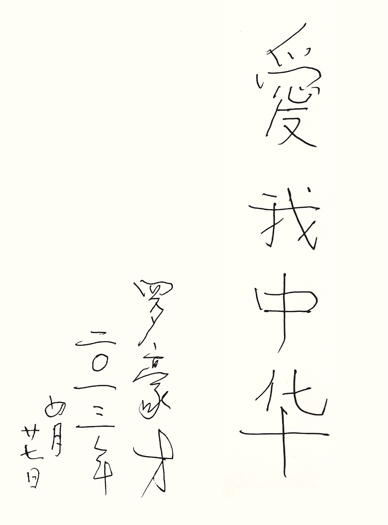 愛我中华
罗豪才
二〇一三年
四月
廿七日